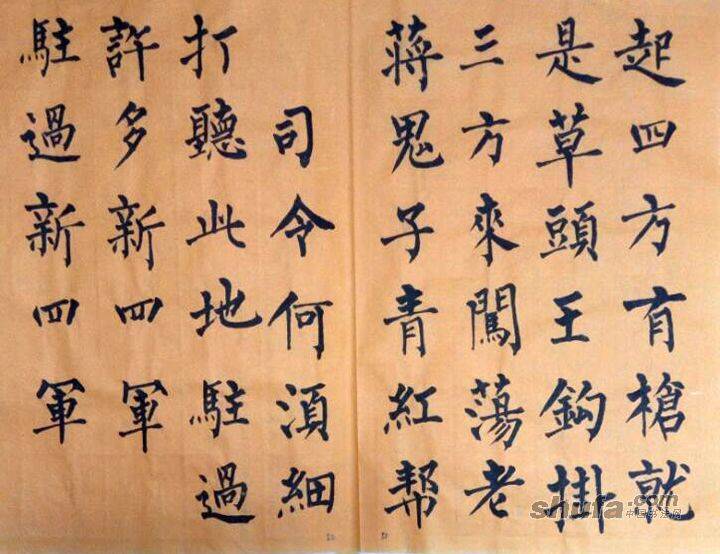 起四方有槍就
是草頭王鈎掛
三方來闖蕩老
蔣鬼子青紅帮
司令何須細
打聽此地駐過
許多新四軍
駐過新四軍
shufa.com
中国书法网